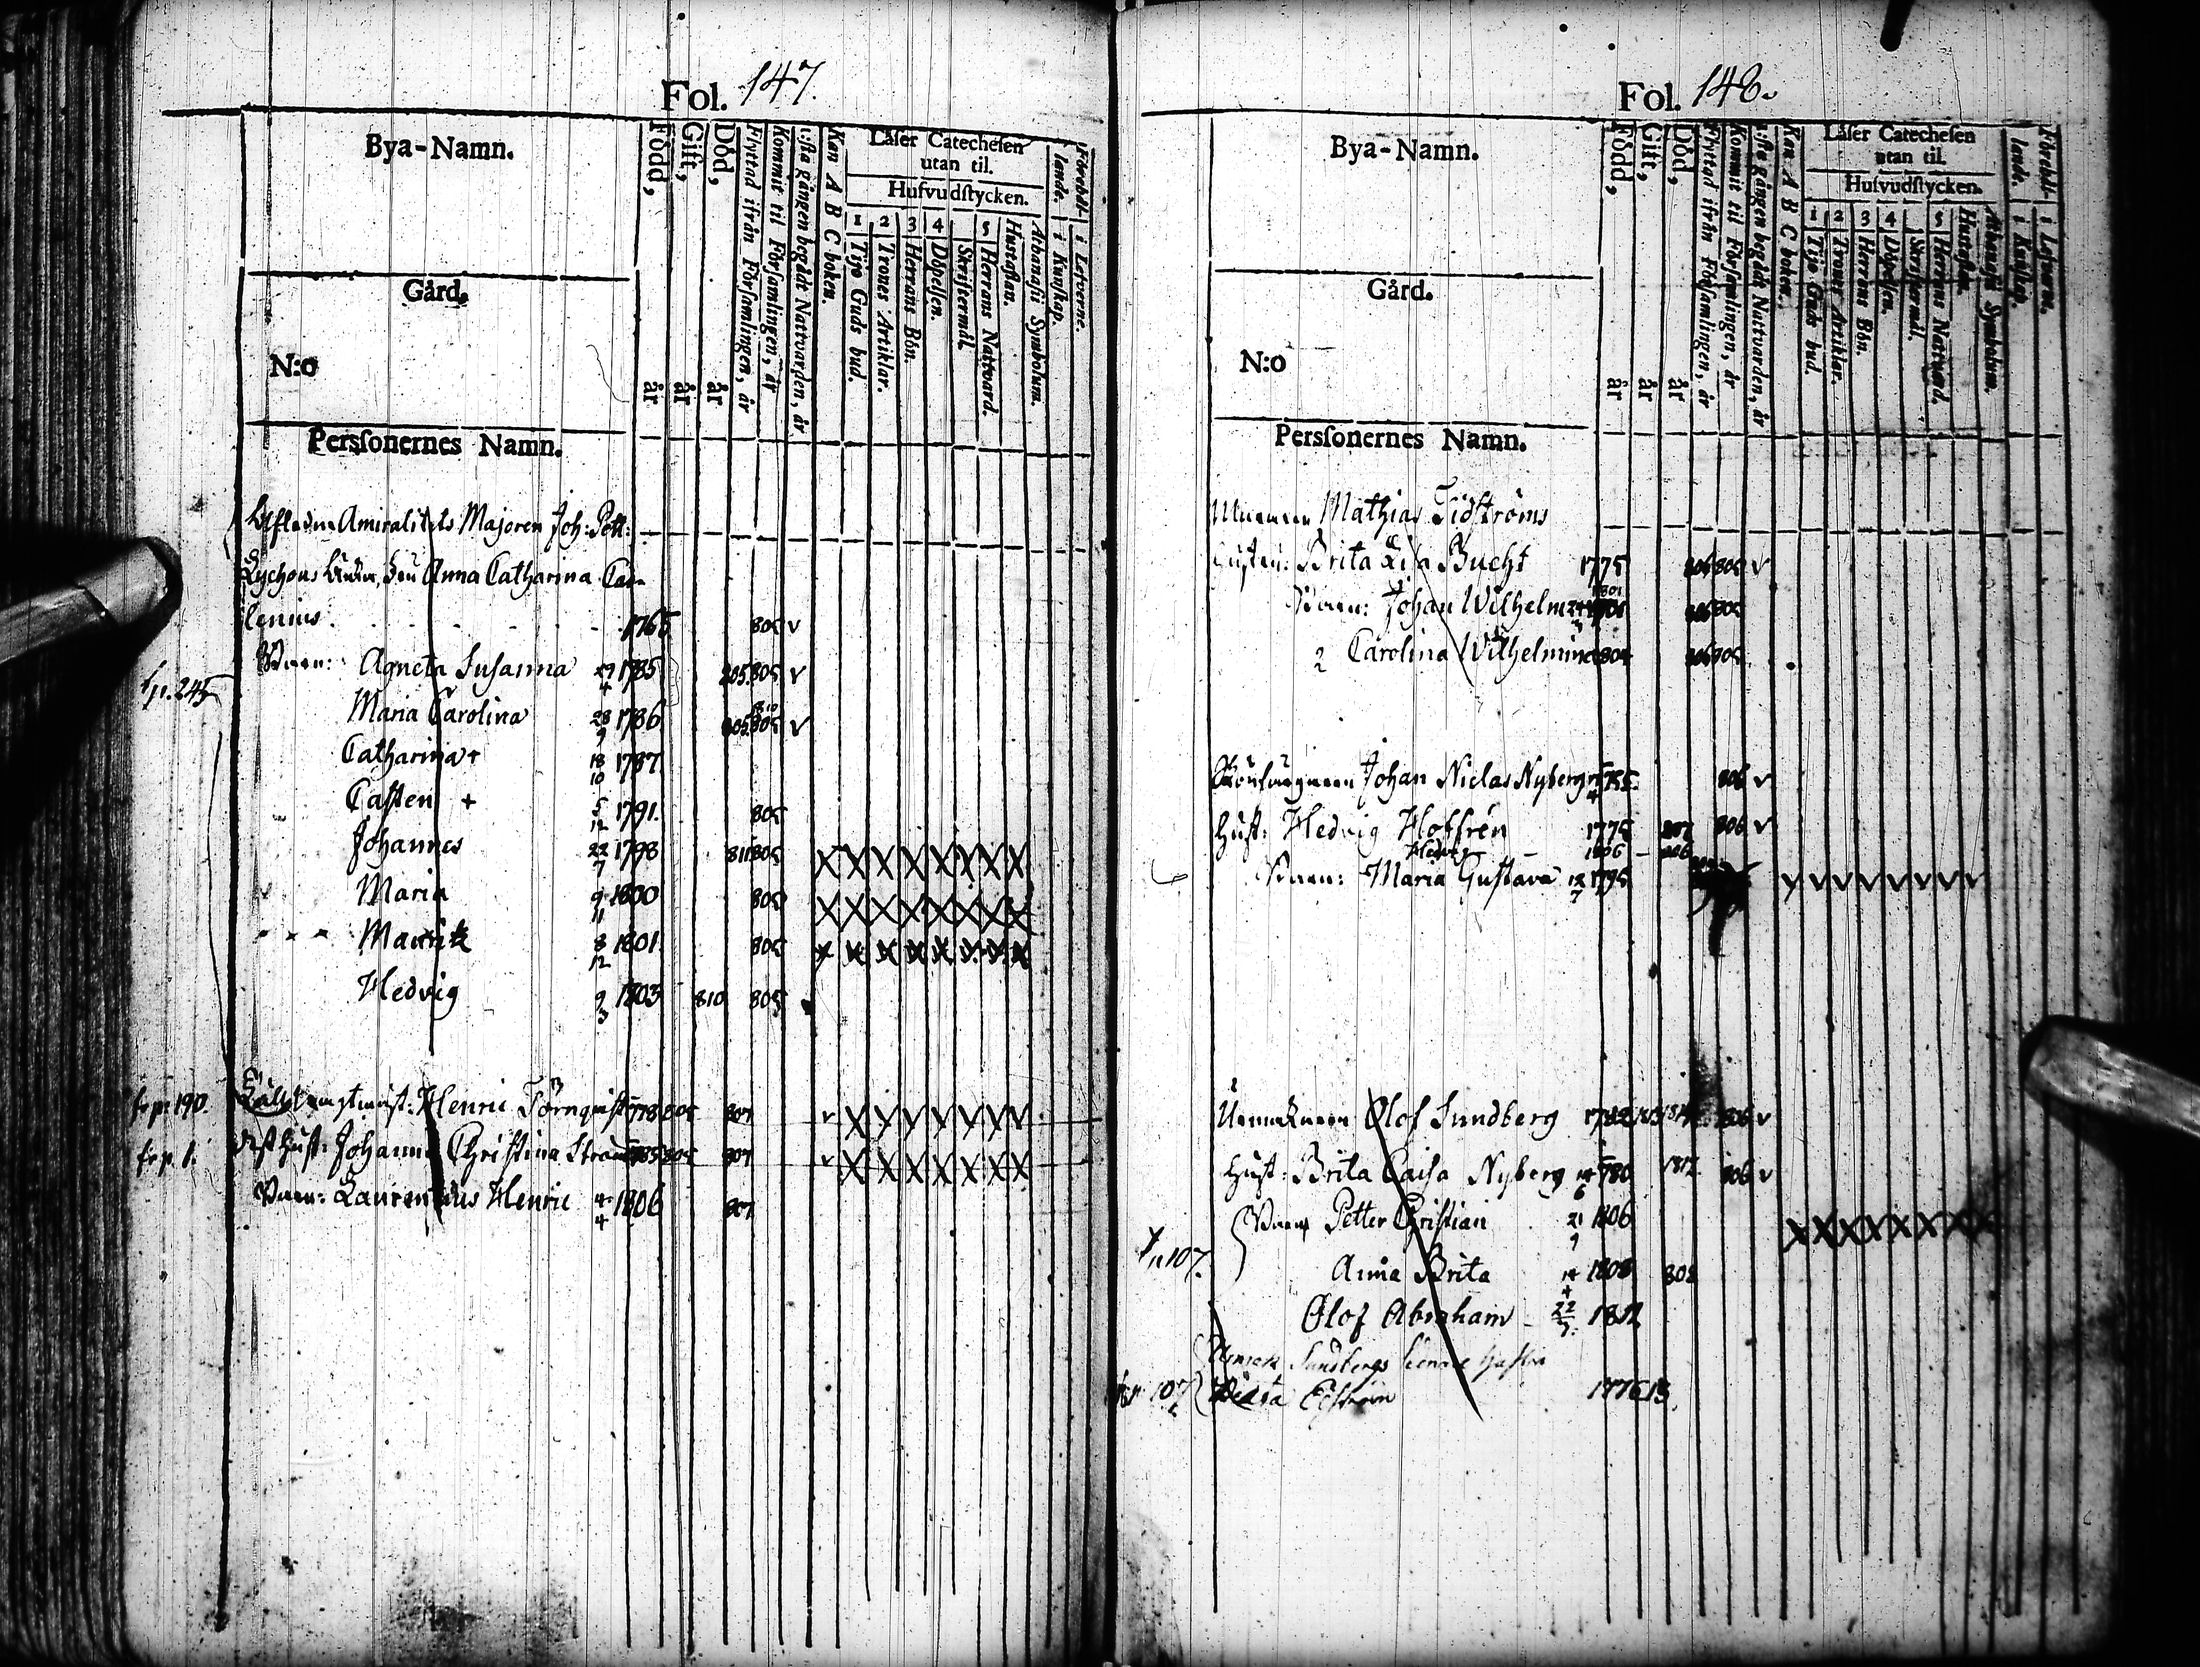 Fol. 147.
Bya-Namn.
Gård.
N:o
Persfonernes Namn.
Född, år
Gift, år
Död, år
Flyttad ifrån Församlingen, år
Kommit til Församlingen, år
1:sta gången begådt Nattvarden, år
Kan A B C boken.
Läser Catechesen
utan til.
Hufvudstycken.
1 Tijo Guds bud.
2 Trones Artiklar.
3 Herrans Bön.
4 Döpelsen.
Skriftermål.
5 Herrans Nattvard.
Hustaflan.
Athanasii Symbolum.
Förehål-
lande.
i Kunskap.
i Lefverne.
Afledne Amiralitets Majoren Joh: Pett:
Enka, Fru Anna Catharina Ca-
lenius 1765 805 v
Barn: Agneta Susanna 29/4 1785 805 805 v
fp. 245
Maria Carolina 28/9 1786 805 805 v
Catharina + 18/10 1787
Casten + 5/12 1791. 805
Johannes 22/7 1798 811 805
Maria 9/11 1800 805
Maurits 8/12 1801. 805
Hedvig 9/3 1803 810 805
fr p: 190. Henric Törnquist 1778 805 807
fr p. 1. Hust: Johanna Christina 1785 805 807
Barn: Laurentius Henric 4/4 1806 807
Fol. 148.
Bya-Namn.
Gård.
N:o
Persfonernes Namn.
Född, år
Gift, år
Död, år
Flyttad ifrån Församlingen, år
Kommit til Församlingen, år
1:sta gången begådt Nattvarden, år
Kan A B C boken.
Läser Catechesen
utan til.
Hufvudstycken.
1 Tijo Guds bud.
2 Trones Artiklar.
3 Herrans Bön.
4 Döpelsen.
Skriftermål.
5 Herrans Nattvard.
Hustaflan.
Athanasii Symbolum.
Förehål-
lande.
i Kunskap.
i Lefverne.
Mathias Tidströms
Hustru: Brita Lisa Bucht 1775 806 805 v
Barn: Johan Wilhelm 1801 806 805
2 Carolina Wilhelmina 1804 806 805
Johan Niclas Nyberg 806 v
Hust: Hedvig Hoffrén 1775 807 806 v
Hedvig 1806 – 806
Barn: Maria Gustava 12/7 1795
Olof Sundberg 1782 806 v
Hust: Brita Caisa Nyberg 1780 1812 806 v
Barn Petter Christian 21/9 1806
107.
Anna Brita 14/4 1808 808
Olof Abraham 22/7 1811
Sundbergs senare hustru
107 Ecström 1776 13.